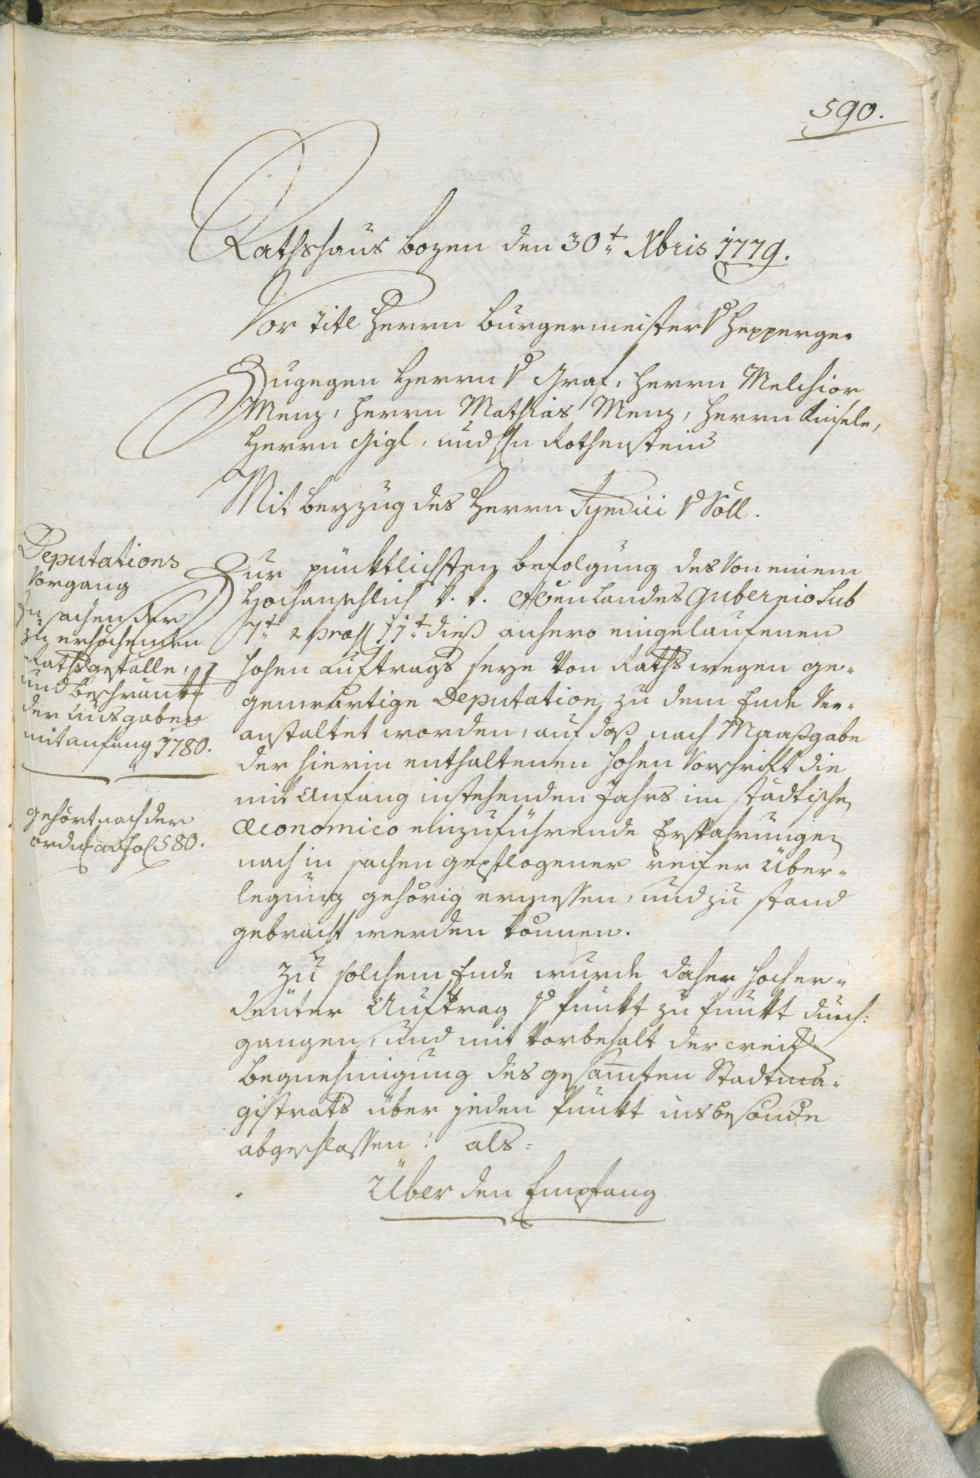 590.
Rathshaus Bozen den 30t Xbris 1779.
Vor Titl Herrn Burgermeister v Hepperger
Zugegen Herrn v Graf, Herrn Melchior
Menz, Herrn Mathias Menz, Herrn Kinsele,
Herrn Gigl, und Hn Rothensteiner
Mit Beyzug des Herrn Syndici v Söll.
Deputations
Vorgang
In sachen der
zu erhöhenden
Raths gefälle,
und Beschränkg
der Ausgaben
mit anfang 1780.
gehört nach der
ordng ad Fol 580.
Zur pünktlichsten befolgung des von einem
Hochansehlich Landes Gubernio sub
7t & pras 17t dieß anhero eingelaufenen
hohen Auftrags seye von Raths wegen ge-
genwärtige Deputation zu dem Ende ver-
anstaltet worden, auf daß nach Maaßgabe
der hierin enthaltenen hohen Vorschrift die
mit Anfang instehenden Jahrs im städtischen
Œconomico einzuführende Ersparungen
nach in sachen gepflogener reifer Über-
legung gehörig ermessen, und zu stand
gebracht werden können.
Zu solchem Ende wurde daher hocher-
deuter Auftrag v Punkt zu Punkt durch:
gangen, und mit Vorbehalt der
begnehmigung des gesamten Stadtma-
gistrats über jeden Punkt insbesonde
abgeschlossen: als:
Über den Empfang